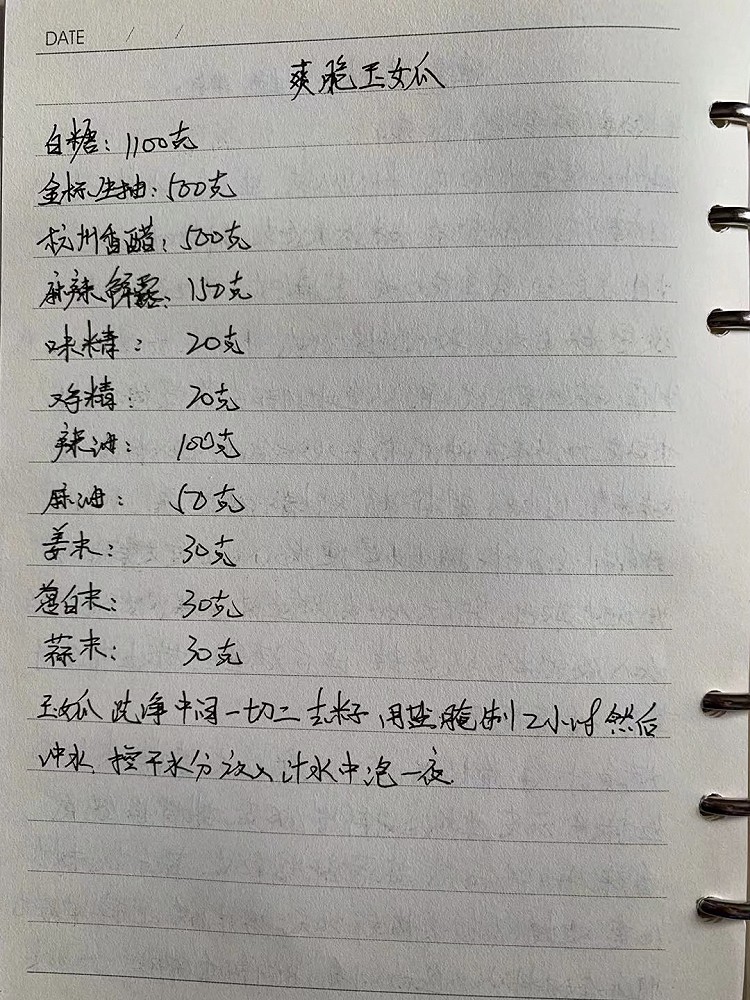 DATE / /
爽脆玉女瓜
白糖：1100克
金标生抽：500克
杭州香醋：500克
麻辣鲜露：150克
味精：20克
鸡精：20克
辣油：100克
麻油：50克
姜末：30克
葱白末：30克
蒜末：30克
玉女瓜 洗净中间一切二去籽 用盐腌制2小时然后
冲水，控干水分放入汁水中泡一夜